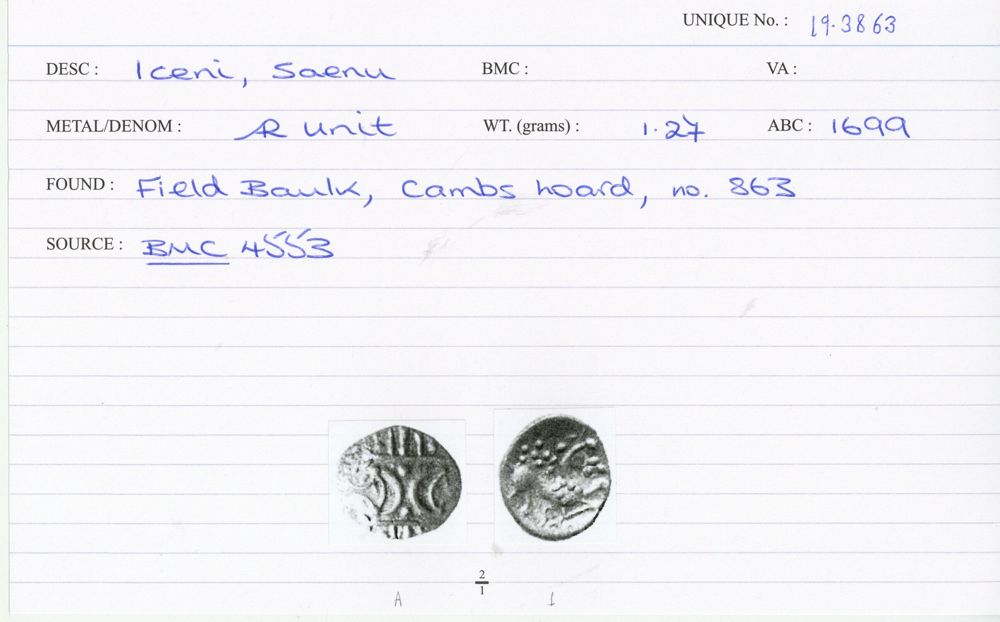 UNIQUE No. : 19.3863
DESC : Iceni, Saenu BMC : VA :
METAL/DENOM : AR unit WT. (grams) : 1.27 ABC : 1699
FOUND : Field Baulk, Cambs hoard, no. 863
SOURCE : BMC 4553
2
1
A 1